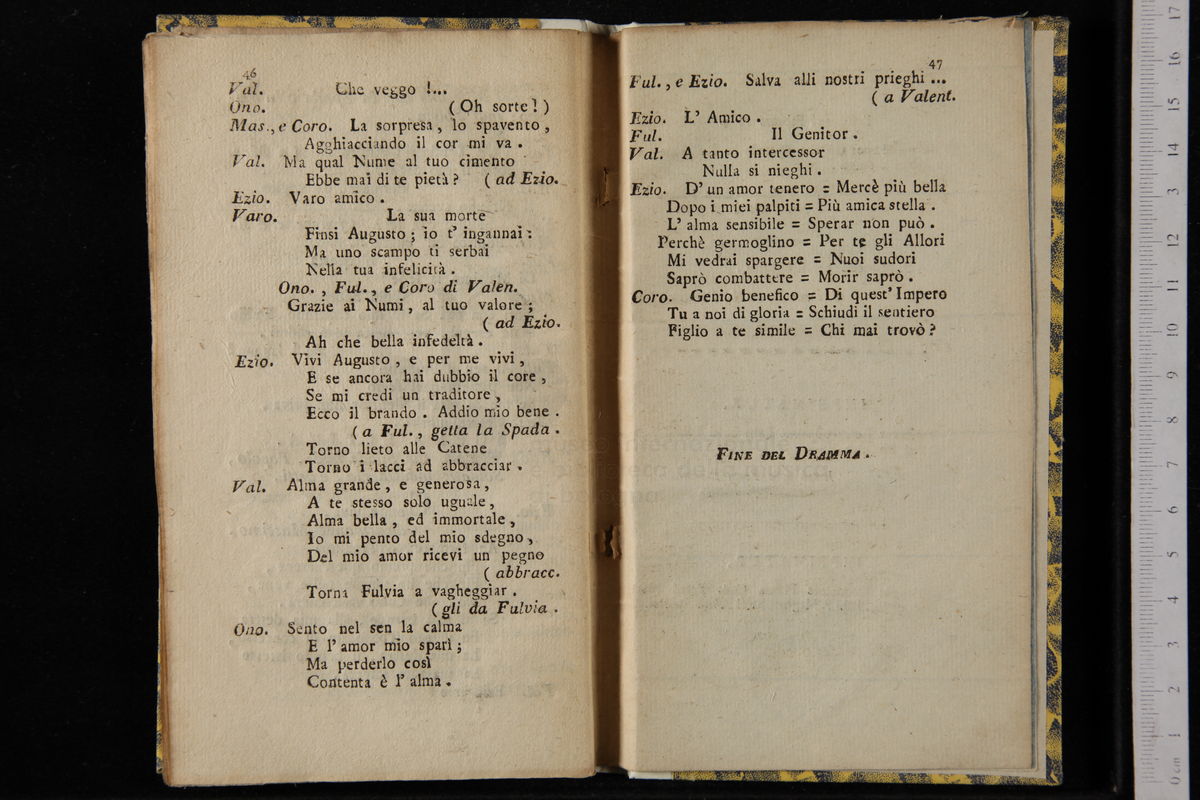 46
Val. Che veggo !...
Ono. ( Oh sorte ! )
Mas., e Coro. La sorpresa, lo spavento,
Agghiacciando il cor mi va .
Val. Ma qual Nume al tuo cimento
Ebbe mai di te pietà ? ( ad Ezio.
Ezio. Varo amico .
Varo. La sua morte
Finsi Augusto ; io t' ingannai :
Ma uno scampo ti serbai
Nella tua infelicità .
Ono. , Ful. , e Coro di Valen.
Grazie ai Numi , al tuo valore ;
( ad Ezio.
Ah che bella infedeltà .
Ezio. Vivi Augusto , e per me vivi ,
E se ancora hai dubbio il core ,
Se mi credi un traditore ,
Ecco il brando . Addio mio bene .
( a Ful. , getta la Spada .
Torno lieto alle Catene
Torno i lacci ad abbracciar .
Val. Alma grande , e generosa ,
A te stesso solo uguale ,
Alma bella , ed immortale ,
Io mi pento del mio sdegno ,
Del mio amor ricevi un pegno
( abbracc.
Torna Fulvia a vagheggiar .
( gli da Fulvia .
Ono. Sento nel sen la calma
E l' amor mio sparì ;
Ma perderlo così
Contenta è l' alma .
47
Ful. , e Ezio. Salva alli nostri prieghi ...
( a Valent.
Ezio. L' Amico .
Ful. Il Genitor .
Val. A tanto intercessor
Nulla si nieghi .
Ezio. D' un amor tenero = Mercè più bella
Dopo i miei palpiti = Più amica stella .
L' alma sensibile = Sperar non può .
Perchè germoglino = Per te gli Allori
Mi vedrai spargere = Nuoi sudori
Saprò combattere = Morir saprò .
Coro. Genio benefico = Di quest' Impero
Tu a noi di gloria = Schiudi il sentiero
Figlio a te simile = Chi mai trovò ?
FINE DEL DRAMMA .
0 cm 1 2 3 4 5 6 7 8 9 10 11 12 13 14 15 16 17